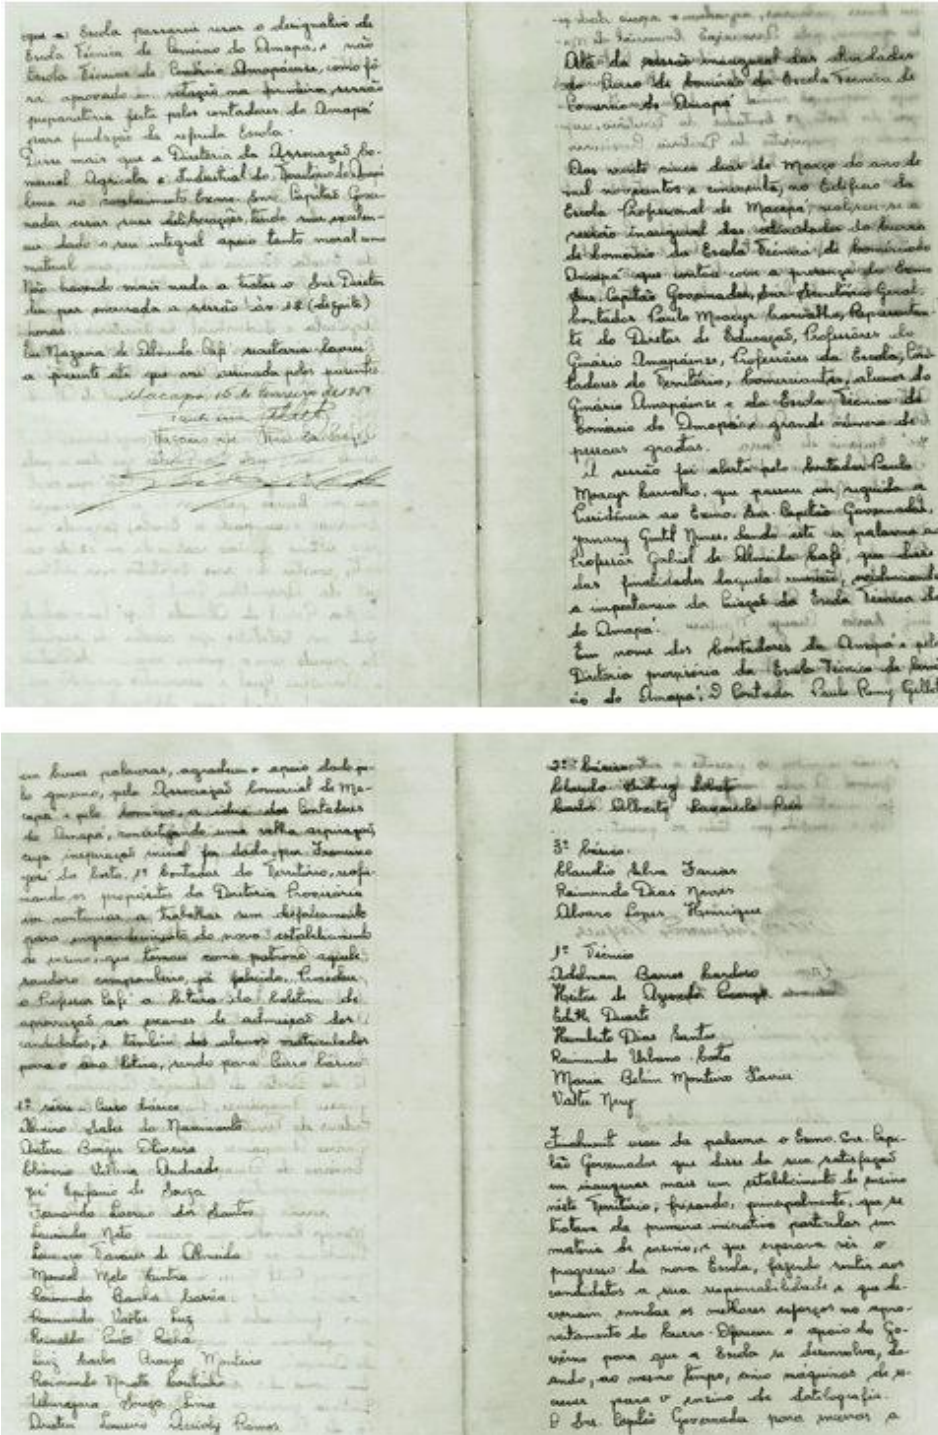 que a Escola passaria usar o designativo de
Escola Técnica de Comercio do Amapá, e não
Escola Técnica de Comércio Amapaense, como fô
ra aprovado em votação na primeira sessão
preparatoria feita pelos contadores do Amapá
para fundação da referida Escola.
Disse mais que a Diretoria da Associação Co-
mercial Agricola e Industrial do Territorio do Ama
ao conhecimento Exmo. Snr. Capitão Gover-
nador essas suas deliberações, tendo sua excelen-
cia dado o seu integral apoio tanto moral como
material
Não havendo mais nada a tratar o Snr. Diretor
deu por encerrada a sessão às 18 (dezoito)
horas.
Eu Mazana de Almeida Café secretaria lavrei
a presente ata que vai assinada pelos presentes
Macapá, 15 de Fevereiro de 1950
Ata da sessão inaugural das atividades
do Curso de Comércio da Escola Tecnica de
Comercio do Amapá
Aos vinte cinco dias de Março do ano de
mil novecentos e cinquenta, no Edificio da
Escola Profissional de Macapá, realizou-se a
sessão inaugural das atividades do Curso
de Comércio da Escola Técnica de Comércio do
Amapá que contou com a presença do Exmo
Snr. Capitão Governador, Snr. Secretário Geral,
Contador Paulo Moacyr Carvalho, Representan-
te do Diretor de Educação, Professôres do
Ginásio Amapáense, Professôres da Escola, Con-
tadores do Território, Comerciantes, alunos do
Ginásio Amapáense e da Escola Tecnica de
Comércio do Amapá e grande número de
pessoas gradas.
A sessão foi aberta pelo Contador Paulo
Moacyr Carvalho, que passou em seguida a
Presidência ao Exmo. Snr. Capitão Governador,
Janary Gentil Nunes, dando este a palavra ao
Professôr Gabriel de Almeida Café, que disse
das finalidades daquela reunião, evidenciando
a importancia da criação da Escola Tecnica de
do Amapá.
Em nome dos Contadores do Amapá e pela
Diretoria provisória da Escola Tecnica de Comér
cio do Amapá, o Contador Paulo Ramy Gillet
em breves palavras, agradeceu o apoio dado pe-
lo governo, pela Associação Comercial de Ma-
capá e pelo Comércio, a idéia dos Contadores
do Amapá, concretizando uma velha aspiração
cuja inspiração inicial foi dada por Francisco
José da Costa, 1º Contador do Território, reafir-
mando os propósitos da Diretoria Provisória
em continuar a trabalhar sem desfalecimento
para engrandecimento do novo estabelecimento
de ensino, que tomou como patrono aquele
saudoso companheiro, já falecido. Procedeu
o Professor Café a leitura do boletim de
aprovação aos exames de admissão dos
candidatos, e também dos alunos matriculados
para o ano letivo, sendo para Curso básico
1ª série - Curso básico
Sales do Nascimento
Borges Oliveira
Villena Andrade
José Epifanio de Souza
Fernando Lacruz dos Santos
Laurindo Neto
Lourenço Tavares de Almeida
Manoel Melo
Raimundo Banha
Raimundo Valter Luz
Reinaldo Pinto Rocha
Luiz Carlos Araujo Monteiro
Raimundo Nonato Coutinho
Ubiraçara Souza Lima
Loureiro Accioly Ramos
2º básico
Claudio Sidney Lobato
Carlos Alberto
3º básico.
Claudio Silva Farias
Raimundo Dias Neves
Alvaro Lopes Henrique
1º Técnico
Adelman Barros Cardoso
Heitor de Azevedo
Edith Duarte
Humberto Dias Santos
Raimundo Urbano Costa
Maria Belem Monteiro
Valter Nery
Finalment usou da palavra o Exmo. Snr. Capi-
tão Governador que disse da sua satisfação
em inaugurar mais um estabelecimento de ensino
nêste Território, frisando, principalmente, que se
tratava da primeira iniciativa particular em
matéria de ensino, e que esperava vêr o
progresso da nova Escola, fazendo sentir aos
candidatos a sua responsabilidade e que de-
veriam envidar os melhores esforços no apro-
veitamento do Curso. Ofereceu o apoio do Go-
vêrno para que a Escola se desenvolva, do-
ando, ao mesmo tempo, cinco máquinas de es-
crever para o ensino de datilografia.
O Snr. Capitão Governador para